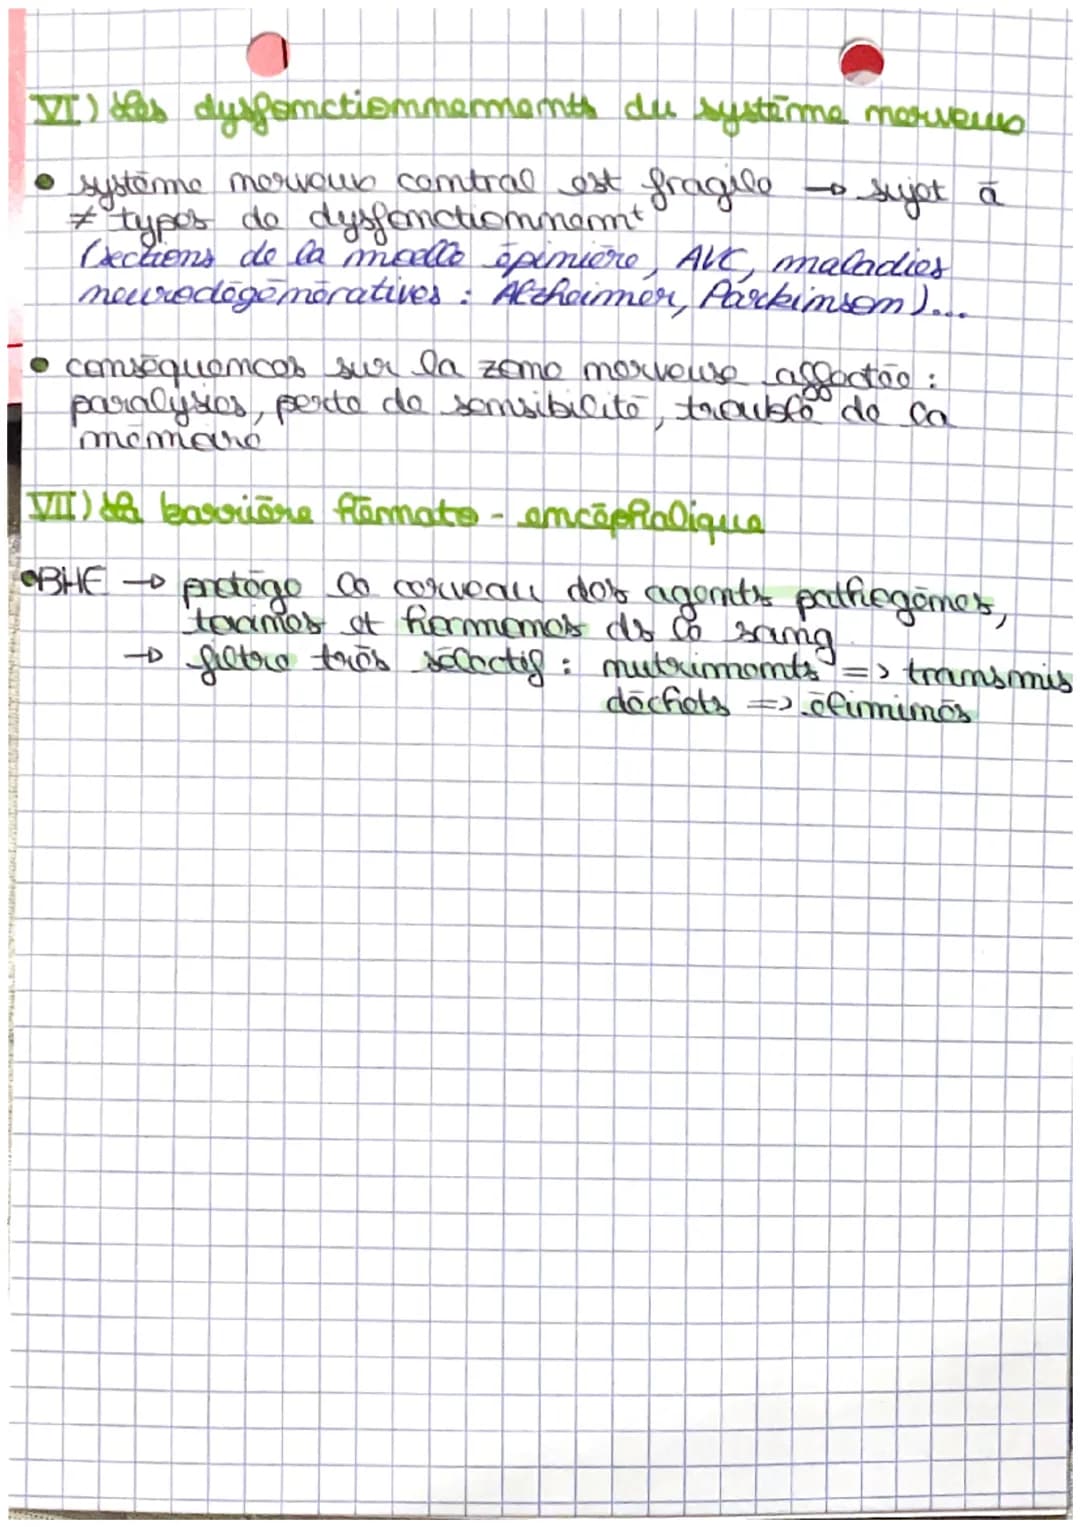 VI) Les dysfonctionnements du système nerveux
• système nerveux central est fragile → sujet à
≠ types de dysfonctionnemt
(sections de la moelle épinière, AVC, maladies
neurodégénératives : Alzheimer, Parkinson)...
• conséquences sur la zone nerveuse affectée :
paralysies, perte de sensibilité, trouble de la
mémoire
VII) La barrière hémato-encéphalique
• BHE → protège le cerveau des agents pathogènes,
toxines et hormones ds le sang
→ filtre très sélectif : nutriments => transmis
déchets => éliminés